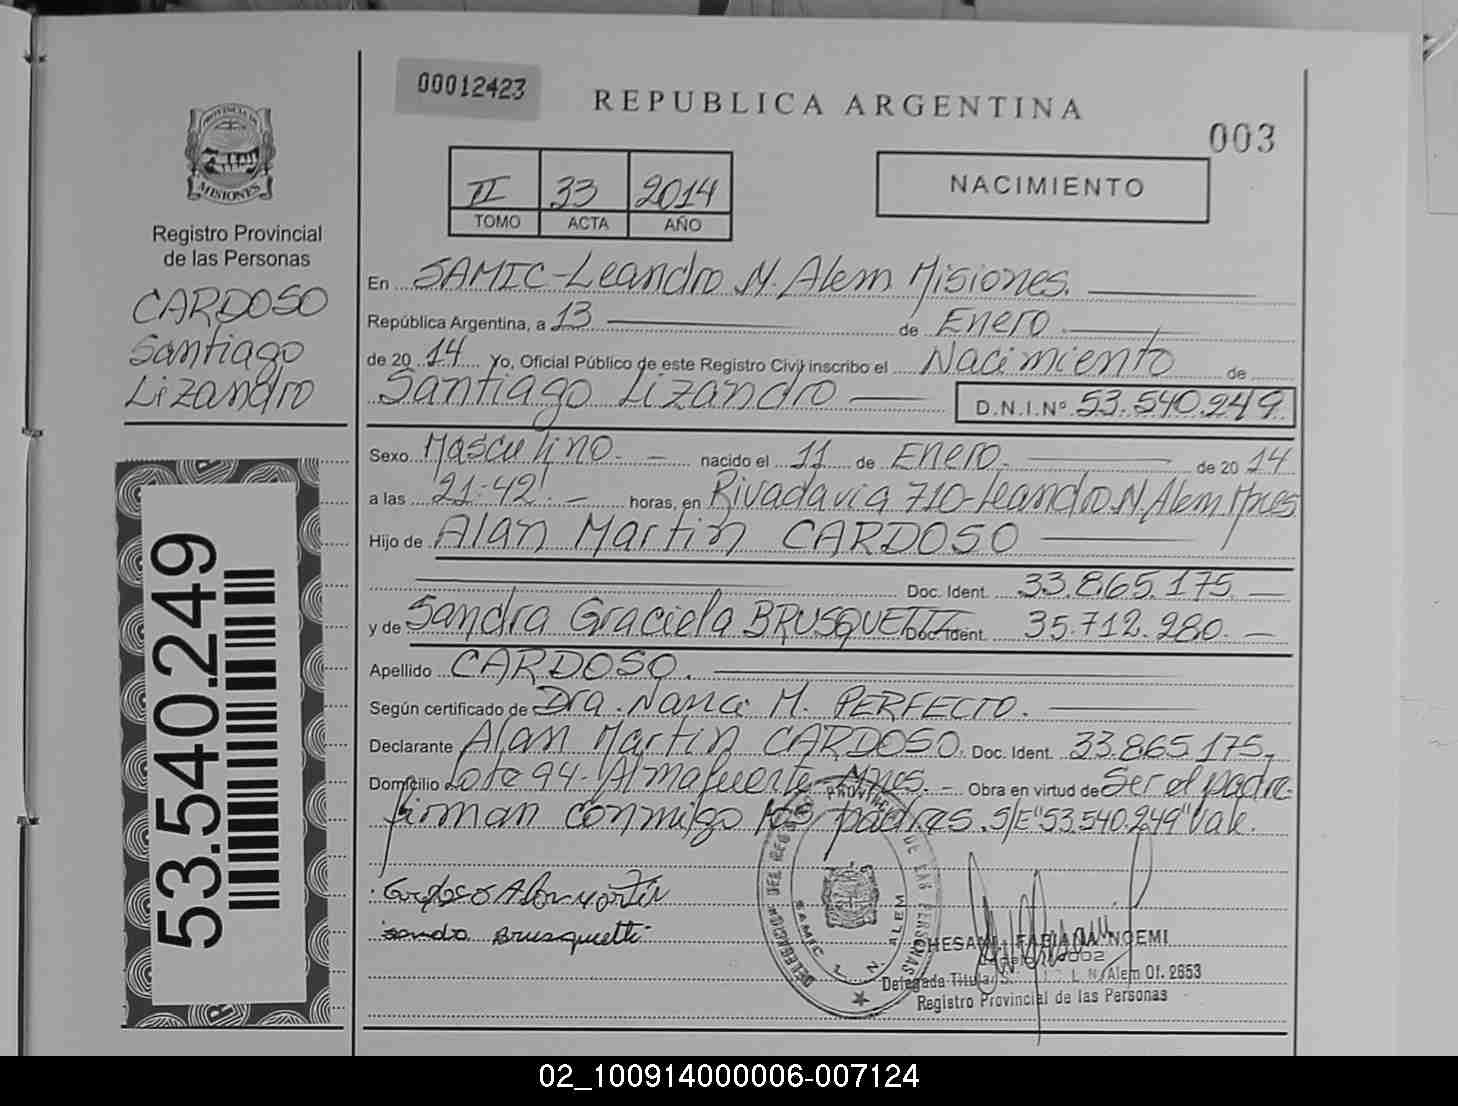 00012423
REPUBLICA ARGENTINA
003
PROVINCIA DE
MISIONES
Registro Provincial
de las Personas
CARDOSO
Santiago
Lizandro
II 33 2014
TOMO ACTA AÑO
NACIMIENTO
En SAMIC-Leandro N. Alem Misiones.
República Argentina, a 13 de Enero.
de 2014 Yo, Oficial Público de este Registro Civil inscribo el Nacimiento de
Santiago Lizandro D.N.I.Nº 53.540.249
Sexo Masculino.- nacido el 11 de Enero. de 2014
a las "21:42".- horas, en Rivadavia 710-Leandro N. Alem Mnes
Hijo de Alan Martin CARDOSO
Doc. Ident. 33.865.175.
y de Sandra Graciela BRUSQUETTI Doc. Ident. 35.712.280.-
Apellido CARDOSO.
Según certificado de Dra. Nanci M. PERFECTO.
Declarante Alan Martin CARDOSO. Doc. Ident. 33.865.175,
Domicilio Lote 94-Almafuerte-Mnes.- Obra en virtud de Ser el padre.
firman conmigo los padres. S/E"53.540.249"Vale.
Cardoso Alan martin
sandra Brusquetti
53.540.249
DELEGACION DEL REGISTRO PROVINCIAL DE LAS PERSONAS
SAMIC L. N. ALEM
FABIANA NOEMI
Delegada Titular L. N. Alem Of. 2653
Registro Provincial de las Personas
02_100914000006-007124